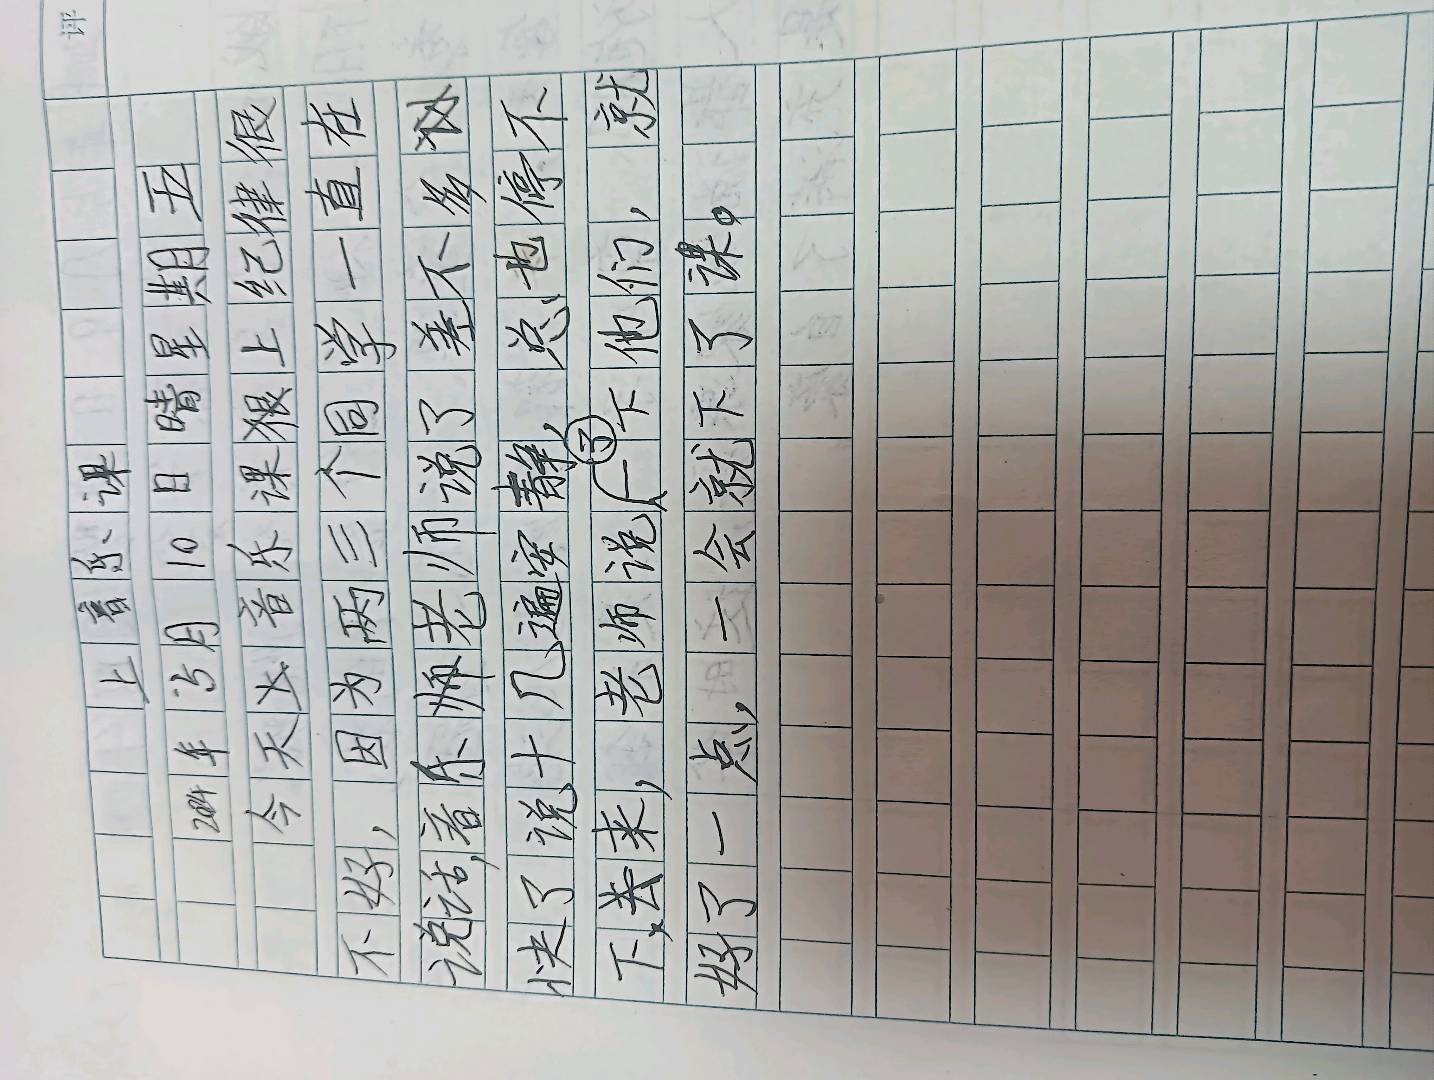 评
上音乐课
2024年5月10日 晴 星期五
今天上音乐课狠上纪律很
不好，因为两三个同学一直在
说话，音乐师老师说了差不多
快了说十几遍安静，总也停不
下去来，老师说了一下他们，就
好了一点，一会就下了课。